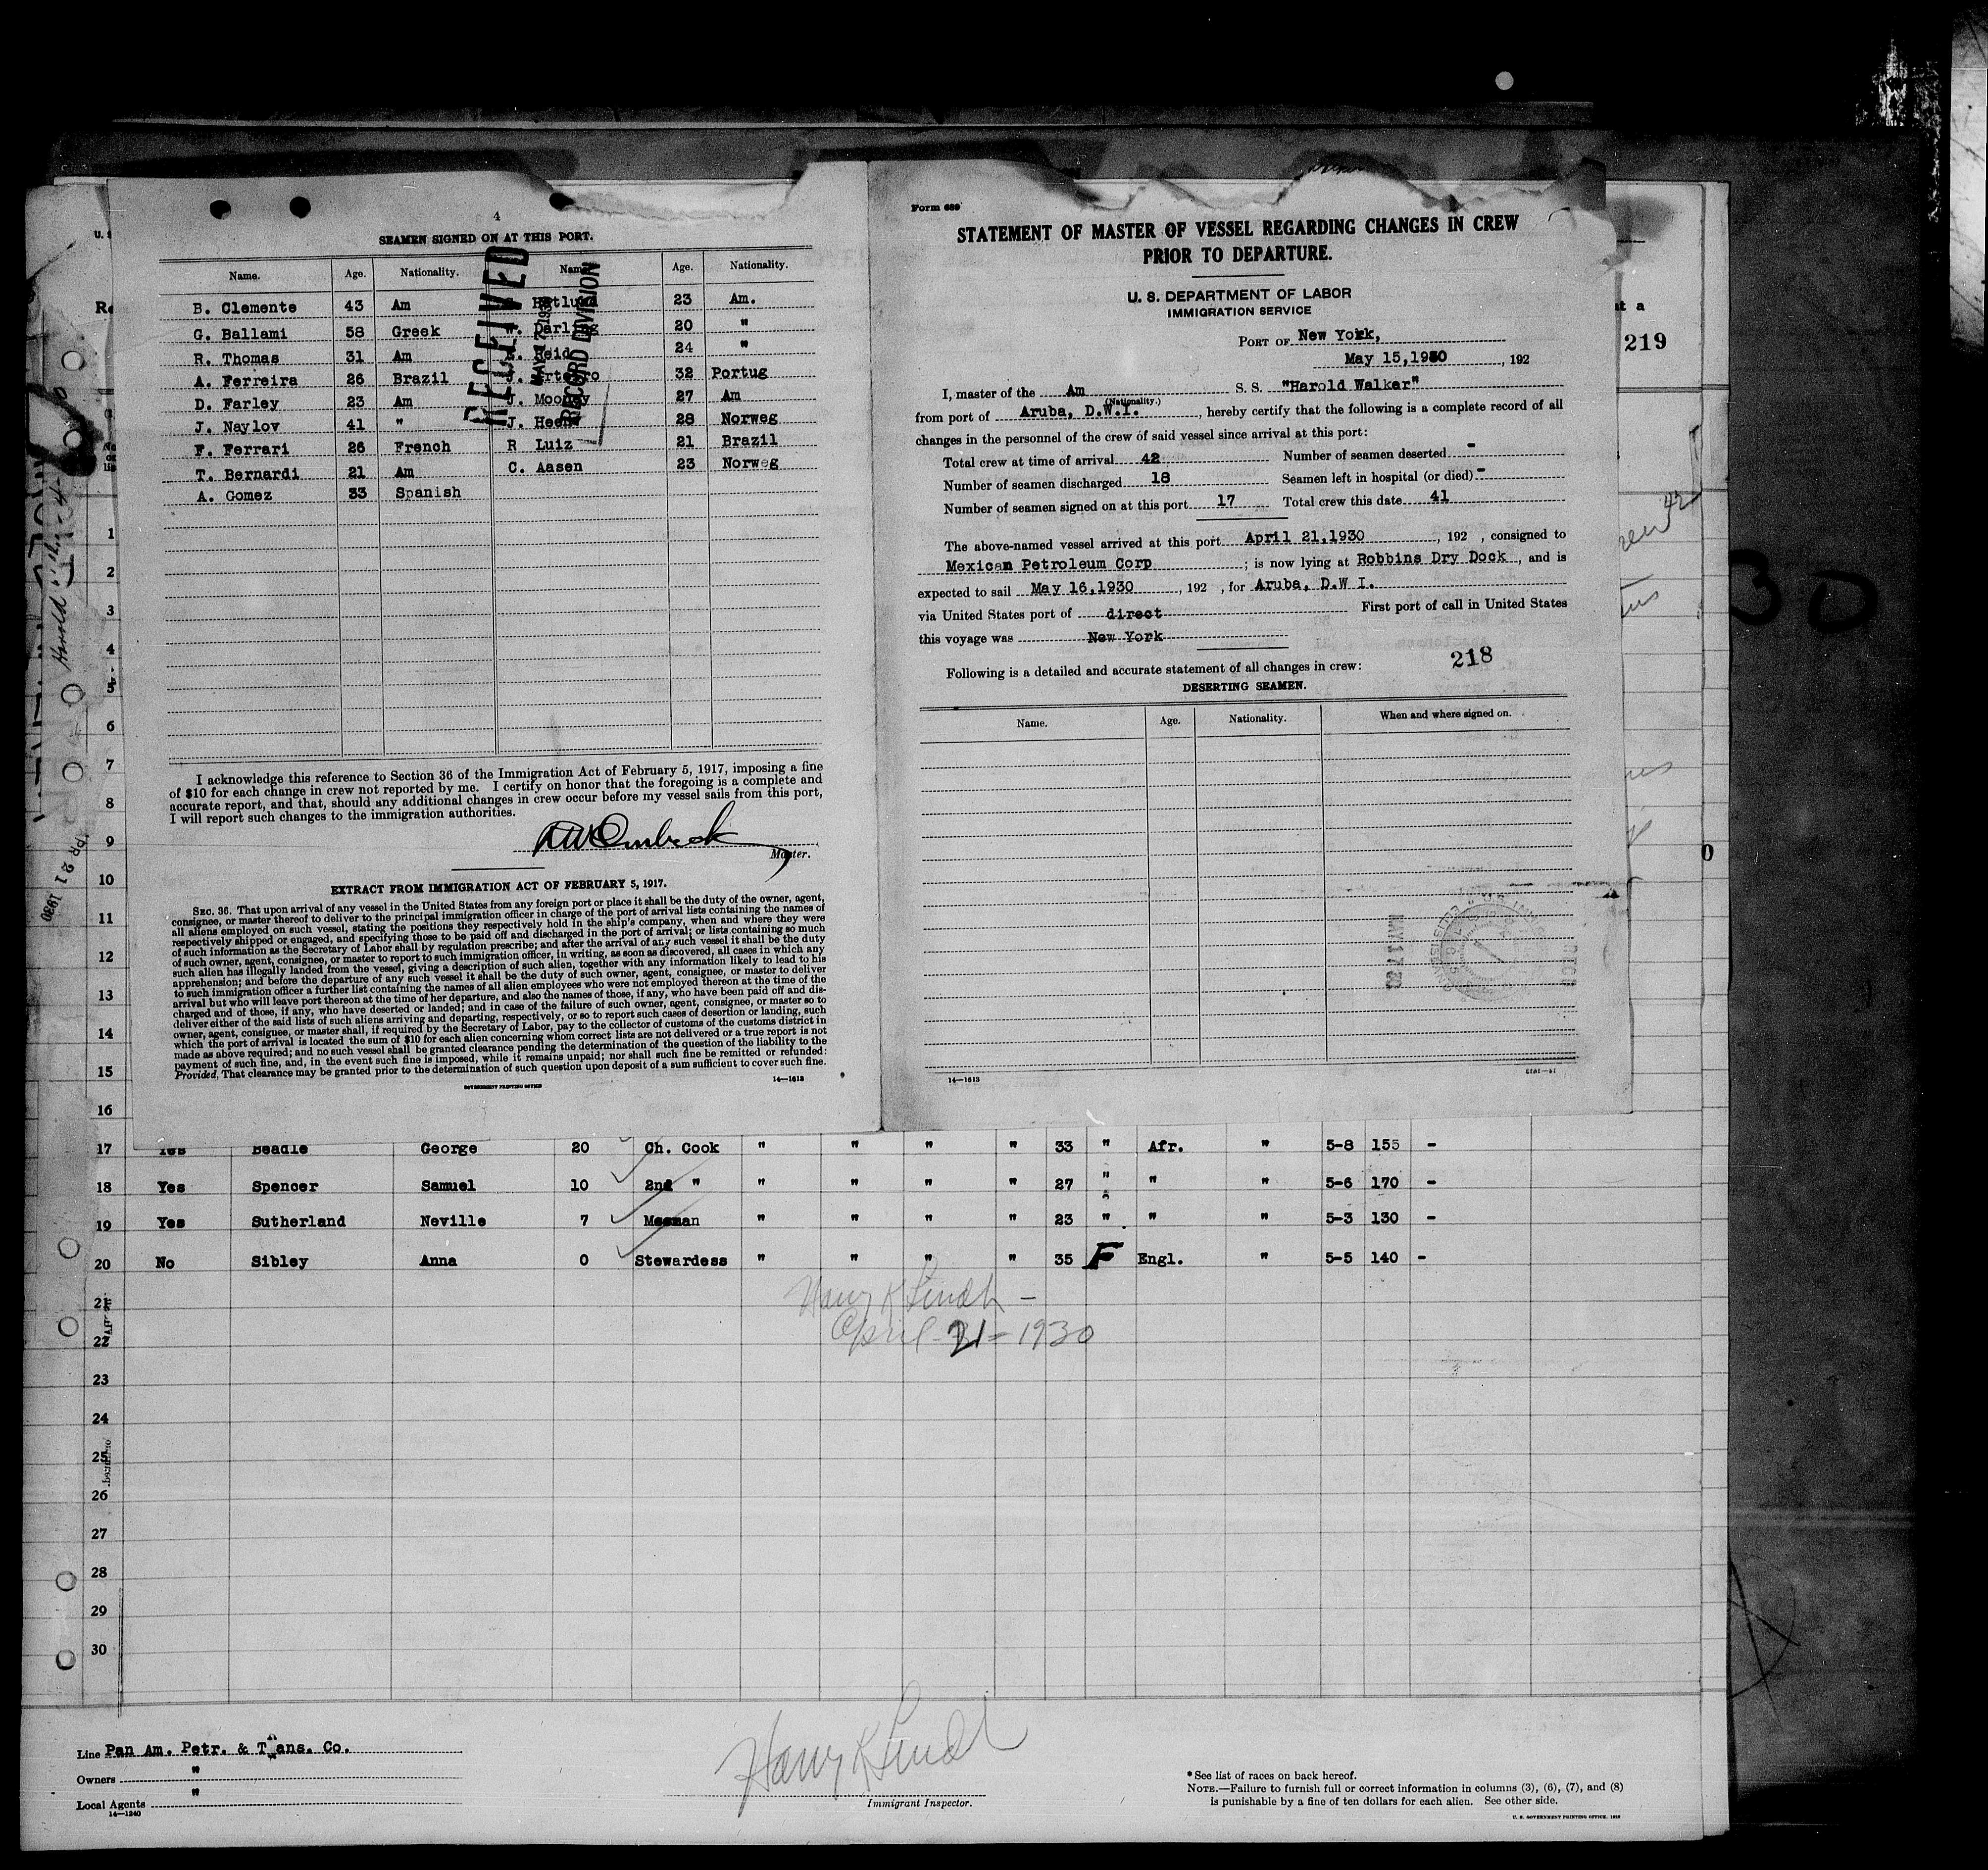 4
SEAMEN SIGNED ON AT THIS PORT.
Name. Age. Nationality. Name. Age. Nationality.
B. Clemente 43 Am 23 Am.
G. Ballami 58 Greek W. Darling 20 "
R. Thomas 31 Am Reid 24 "
A. Ferreira 26 Brazil J. 32 Portug
D. Farley 23 Am J. Mooney 27 Am
J. Naylov 41 " J. 28 Norweg
F. Ferrari 26 French R Luiz 21 Brazil
T. Bernardi 21 Am C. Aasen 23 Norweg
A. Gomez 33 Spanish
RECEIVED
MAY 17 1930
RECORD DIVISION
I acknowledge this reference to Section 36 of the Immigration Act of February 5, 1917, imposing a fine
of $10 for each change in crew not reported by me. I certify on honor that the foregoing is a complete and
accurate report, and that, should any additional changes in crew occur before my vessel sails from this port,
I will report such changes to the immigration authorities.
Master.
EXTRACT FROM IMMIGRATION ACT OF FEBRUARY 5, 1917.
SEC. 36. That upon arrival of any vessel in the United States from any foreign port or place it shall be the duty of the owner, agent,
consignee, or master thereof to deliver to the principal immigration officer in charge of the port of arrival lists containing the names of
all aliens employed on such vessel, stating the positions they respectively hold in the ship's company, when and where they were
respectively shipped or engaged, and specifying those to be paid off and discharged in the port of arrival; or lists containing so much
of such information as the Secretary of Labor shall by regulation prescribe; and after the arrival of any such vessel it shall be the duty
of such owner, agent, consignee, or master to report to such immigration officer, in writing, as soon as discovered, all cases in which any
such alien has illegally landed from the vessel, giving a description of such alien, together with any information likely to lead to his
apprehension; and before the departure of any such vessel it shall be the duty of such owner, agent, consignee, or master to deliver
to such immigration officer a further list containing the names of all alien employees who were not employed thereon at the time of the
arrival but who will leave port thereon at the time of her departure, and also the names of those, if any, who have been paid off and dis-
charged and of those, if any, who have deserted or landed; and in case of the failure of such owner, agent, consignee, or master so to
deliver either of the said lists of such aliens arriving and departing, respectively, or so to report such cases of desertion or landing, such
owner, agent, consignee, or master shall, if required by the Secretary of Labor, pay to the collector of customs of the customs district in
which the port of arrival is located the sum of $10 for each alien concerning whom correct lists are not delivered or a true report is not
made as above required; and no such vessel shall be granted clearance pending the determination of the question of the liability to the
payment of such fine, and, in the event such fine is imposed, while it remains unpaid; nor shall such fine be remitted or refunded:
Provided, That clearance may be granted prior to the determination of such question upon deposit of a sum sufficient to cover such fine.
GOVERNMENT PRINTING OFFICE 14—1613
Form 689
STATEMENT OF MASTER OF VESSEL REGARDING CHANGES IN CREW
PRIOR TO DEPARTURE.
U. S. DEPARTMENT OF LABOR
IMMIGRATION SERVICE
PORT OF New York,
May 15,1930, 192
I, master of the Am S. S. "Harold Walker"
(Nationality.)
from port of Aruba, D.W.I., hereby certify that the following is a complete record of all
changes in the personnel of the crew of said vessel since arrival at this port:
Total crew at time of arrival 42 Number of seamen deserted -
Number of seamen discharged 18 Seamen left in hospital (or died) -
Number of seamen signed on at this port 17 Total crew this date 41
The above-named vessel arrived at this port April 21,1930, 192 , consigned to
Mexican Petroleum Corp ; is now lying at Robbins Dry Dock, and is
expected to sail May 16,1930, 192 , for Aruba, D.W I.
via United States port of direct First port of call in United States
this voyage was New York
218
Following is a detailed and accurate statement of all changes in crew:
DESERTING SEAMEN.
Name. Age. Nationality. When and where signed on.
MAY 17
14—1613
219
1
2
3
4
5
6
7
8
9
10
11
12
13
14
15
16
17 Yes Beadle George 20 Ch. Cook " " " " 33 " Afr. " 5-8 155 -
18 Yes Spencer Samuel 10 2nd " " " " " 27 " " " 5-6 170 -
19 Yes Sutherland Neville 7 Messman " " " " 23 " " " 5-3 130 -
20 No Sibley Anna 0 Stewardess " " " " 35 F Engl. " 5-5 140 -
Harry K Lindh -
April-21-1930
21
22
23
24
25
26
27
28
29
30
Line Pan Am. Petr. & Trans. Co.
Owners "
Local Agents "
14—1240
Harry K Lindh
Immigrant Inspector.
* See list of races on back hereof.
NOTE.—Failure to furnish full or correct information in columns (3), (6), (7), and (8)
is punishable by a fine of ten dollars for each alien. See other side.